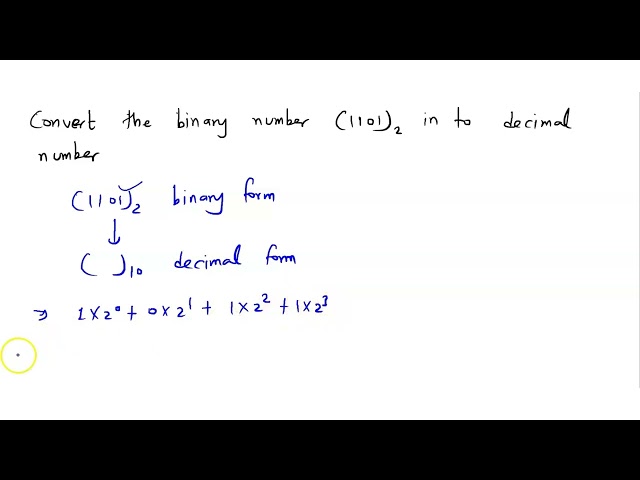 Convert the binary number (1101)₂ in to decimal
number
(1101)₂ binary form
↓
( )₁₀ decimal form
⇒ 1×2⁰ + 0×2¹ + 1×2² + 1×2³